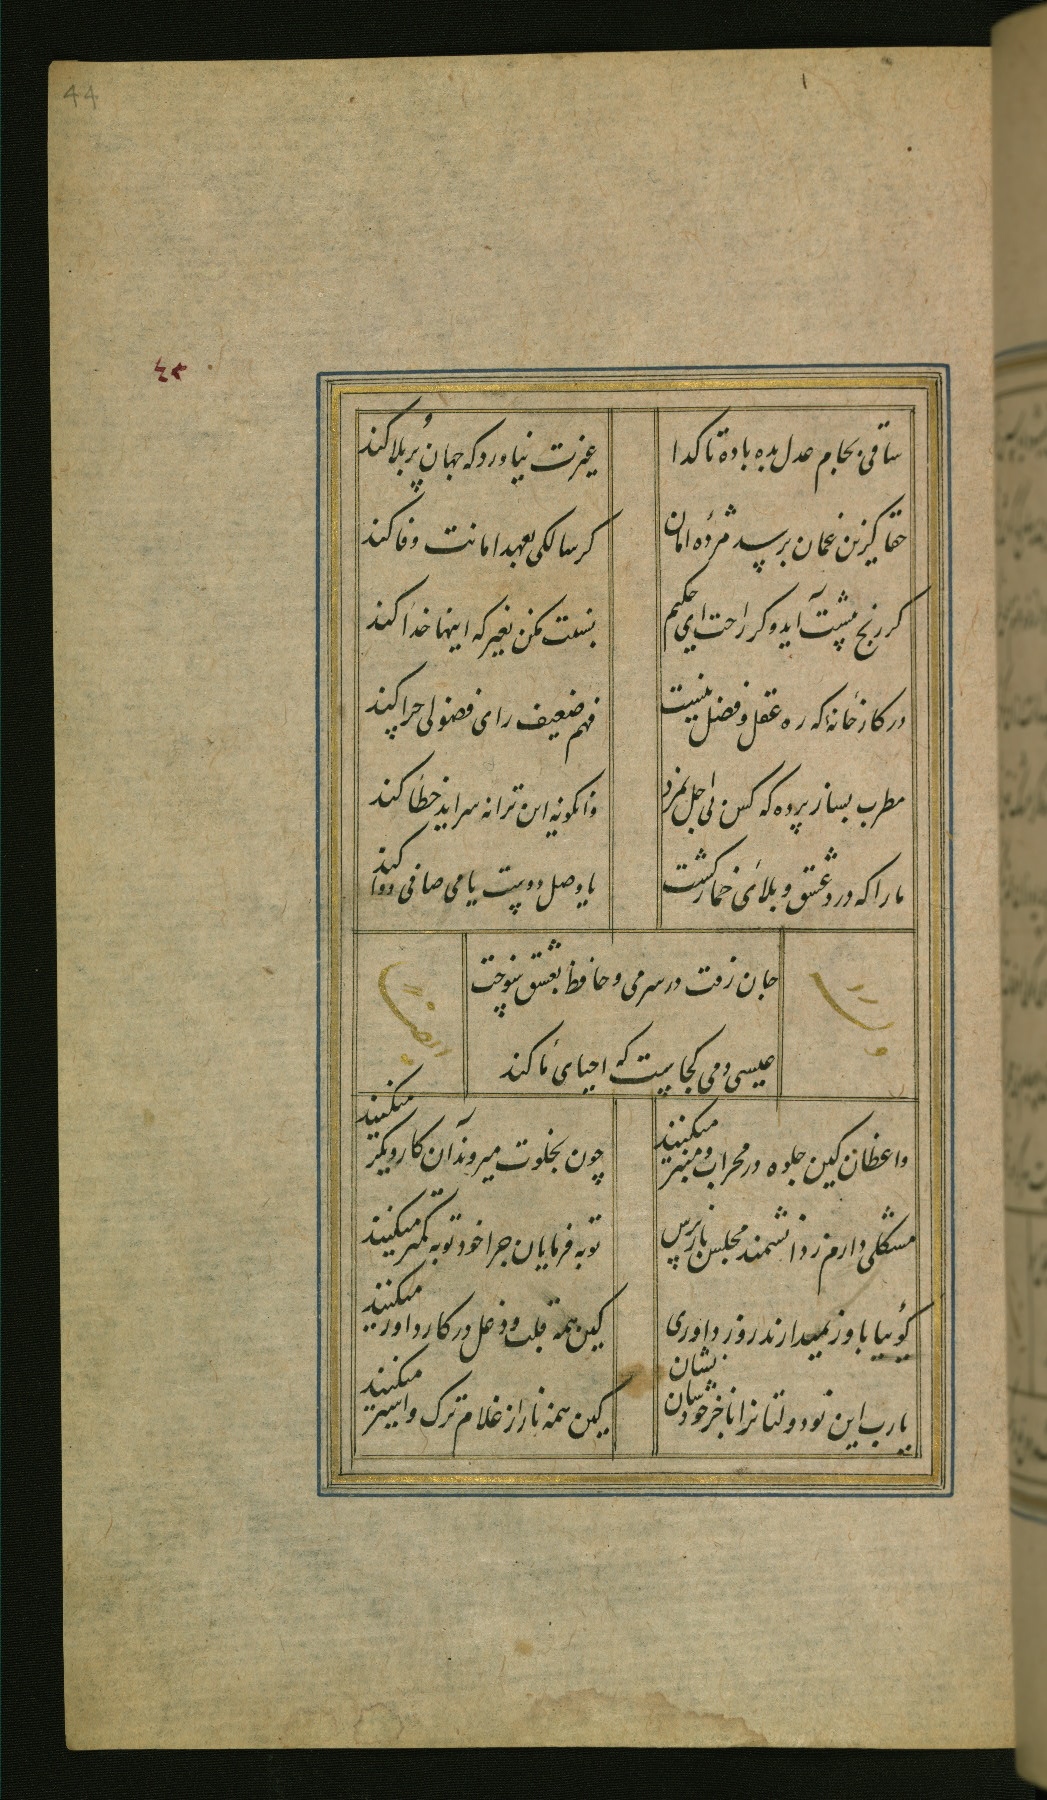 44
٤٣
ساقی بجام عدل بده باده تا کدا
غیرت نیاورد که جهان پر بلا کند
حقا کزین غمان برسد مژده امان
کر سالکی بعهد امانت وفا کند
کر رنج پیشت آید و کر راحت ای حکیم
نسبت مکن بغیر که اینها خدا کند
در کارخانۀ که ره عقل و فضل نیست
فهم ضعیف رای فضولی چرا کند
مطرب بساز پرده که کس بی اجل نمرد
وانکونه این ترانه سراید خطا کند
ما را که درد عشق و بلای خمار کشت
یا وصل دوست یا می صافی دوا کند
جان رفت در سر می و حافظ بعشق سوخت
عیسی دمی کجاست که احیای ما کند
وله
ایضا
واعظان کین جلوه در محراب و منبر میکنند
چون بخلوت میروند آن کار دیکر میکنند
مشکلی دارم ز دانشمند مجلس بازپرس
توبه فرمایان چرا خود توبه کمتر میکنند
کوئیا باور نمیدارند روز داوری
کین همه قلب و دغل در کار داور میکنند
یارب این نودولتانرا با خر خودشان نشان
کین همه ناز از غلام ترک و استر میکنند